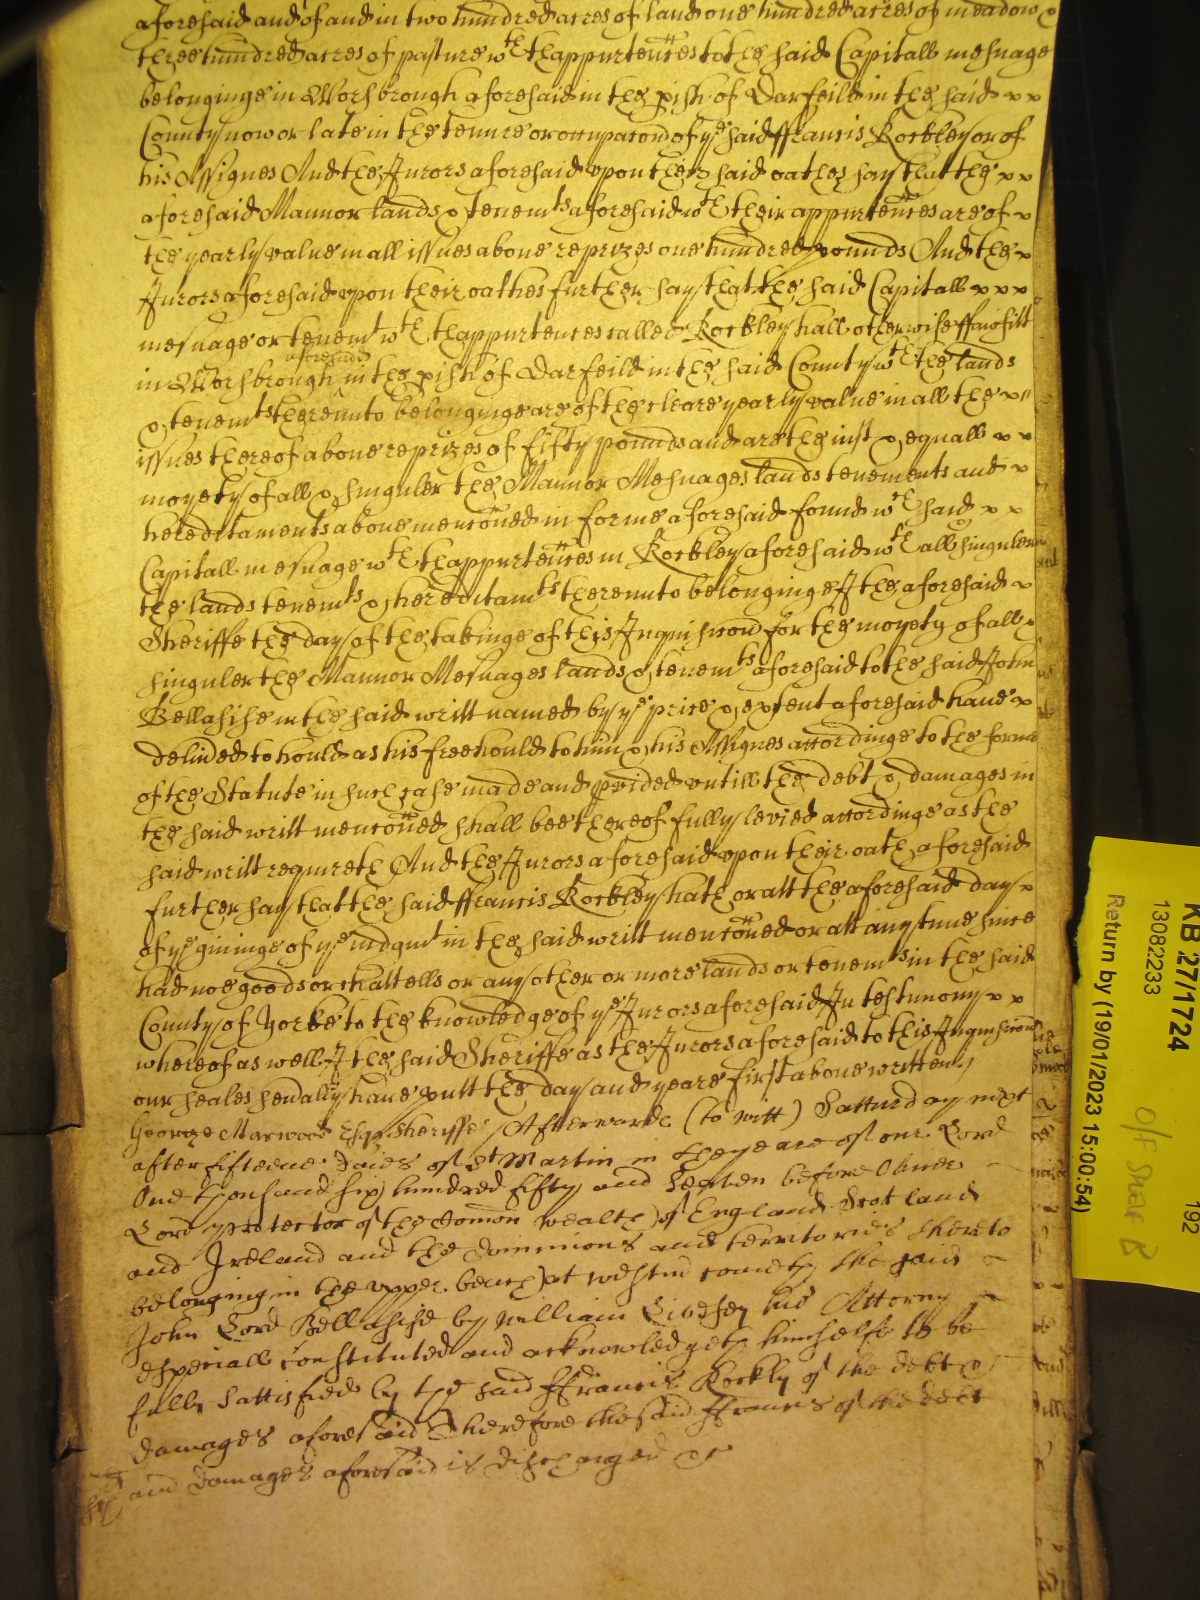 aforesaid and of and in two hundred acres of land one hundred acres of meadow &
three hundred acres of pasture wth thappurtences to the said Capitall mesuage
belonginge in Worsbrough aforesaid in the pish of Darfeild in the said x x
County now or late in the tenure or occupacon of ye said ffrancis Rockley or of
his Assignes And the Jurors aforesaid vpon their said oathes say that the x x
aforesaid Mannor lands & tenemts aforesaid wth their appurtences are of x
the yearly value in all issues aboue reprizes one hundred pounds And the x
Jurors aforesaid vpon their oathes further say that the said Capitall x x x
mesuage or tenemt wth thappurtences called Rockley hall otherwise ffawsitt
in Worsbrough aforesaid in the pish of Darfeild in the said County wth the lands
& tenemts therevnto belonginge are of the cleare yearly value in all the x
issues thereof aboue reprizes of fifty pounds and are the iust & equall x x
moyety of all & singuler the Mannor Mesuages lands tenements and x
hereditaments aboue menconed in forme aforesaid found wch said x x
Capitall mesuage wth thappurtences in Rockley aforesaid wth all & singuler
the lands tenemts & hereditamts therevnto belonginge I the aforesaid x
Sheriffe the day of the takinge of this Inquisicon for the moyety of all &
singuler the Mannor Mesuages lands & tenemts aforesaid to the said John
Bellasise in the said writt named by ye price & extent aforesaid haue x
deliued to hould as his freehould to him & his Assignes accordinge to the forme
of the Statute in such case made and pvided vntill the debt & damages in
the said writt menconed shall bee thereof fully levied accordinge as the
said writt requireth And the Jurors aforesaid vpon their oath aforesaid
further say that the said ffrancis Rockley hath or att the aforesaid day x
of ye giuinge of ye iudgmt in the said writt menconed or att any time since
had noe goods or chattells or any other or more lands or tenemts in the said
County of Yorke to the knowledge of ye Jurors aforesaid In testimony x x
whereof as well I the said Sheriffe as the Jurors aforesaid to this Inquisicon
our seales seually haue putt the day and yeare first aboue written /
George Marwood Esqr Sheryffe / Afterwards (to witt) Satturday next
after fifteene daies of St Martin in the yeare of our Lord
One thousand six hundred fifty and Seaven before Oliver
Lord protector of the Comon wealth of England Scotland
and Ireland and the dominions and territories thereto
belonging in the vpper bench at westm cometh the said
John Lord Bellasise by William Livesey his Attorny
especiall constituted and acknowledgeth himselfe to be
fully sattisfied by the said ffrancis Rockly of the debt &
damages aforesaid Therefore the said ffrancis of the debt
and damages aforesaid is discharged &c
KB 27/1724
13082233
192
Return by (19/01/2023 15:00:54)
O/F Shelf B